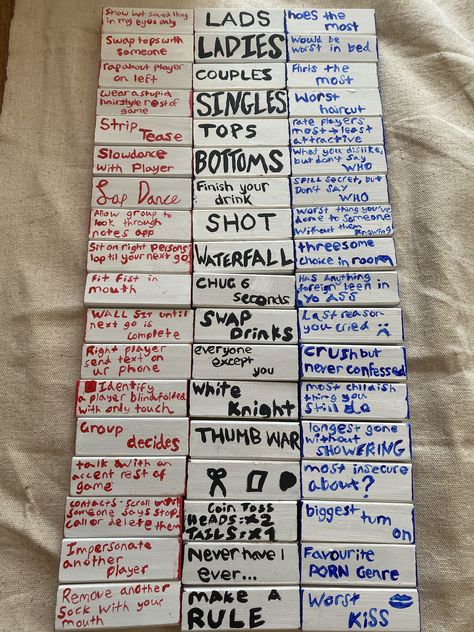 Show last saved thing
in my eyes only
LADS
hoes the
most
Swap tops with
someone
LADIES
Would be
worst in bed
rap about player
on left
COUPLES
Flirts the
most
Wear a stupid
hairstyle rest of
game
SINGLES
Worst
haircut
Strip
Tease
TOPS
rate players
most → least
attractive
Slowdance
with Player
BOTTOMS
What you dislike,
but don't say
WHO
Lap Dance
Finish your
drink
SPILL secret, but
Don't SAY
WHO
Allow group to
look through
notes app
SHOT
Worst thing you've
done to someone
without them
knowing
Sit on right persons
lap til your next go
WATERFALL
threesome
choice in room
Fit fist in
mouth
CHUG 6
seconds
Has anything
foreign been in
Yo ASS
WALL Sit until
next go is
complete
SWAP
Drinks
Last reason
you cried
Right player
send text on
ur phone
everyone
except
you
Crush but
never confessed
Identify
a player blindfolded
with only touch
White
Knight
most childish
thing you
still do
Group
decides
THUMB WAR
longest gone
without
SHOWERING
talk with an
accent rest of
game
most insecure
about?
contacts - scroll until
someone says stop
call or delete them
Coin Toss
HEADS:x2
TAILS:x1
biggest turn
on
Impersonate
another
player
Never have I
ever...
Favourite
PORN Genre
Remove another
sock with your
mouth
MAKE A
RULE
Worst
KISS